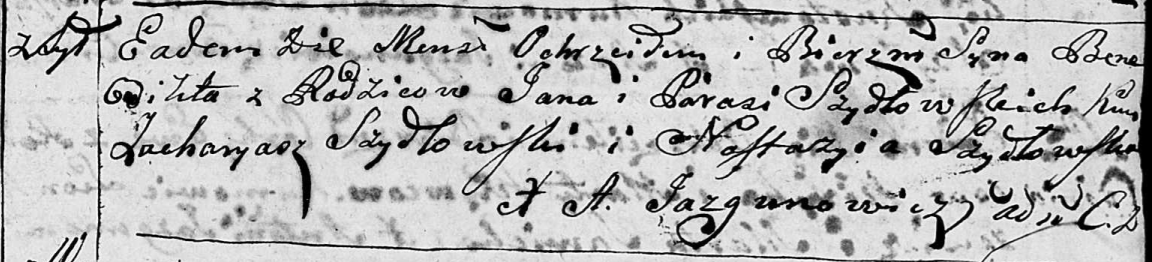 z Żyt Eadem Die Mensi Ochrzciłem i Bierzm Syna Bene
dikta z Rodzicow Jana i Parasi Szydłowskich Kum
Zacharyasz Szydłowski i Nastazyia Szydłowska
X A. Jazgunowicz adm C. Z